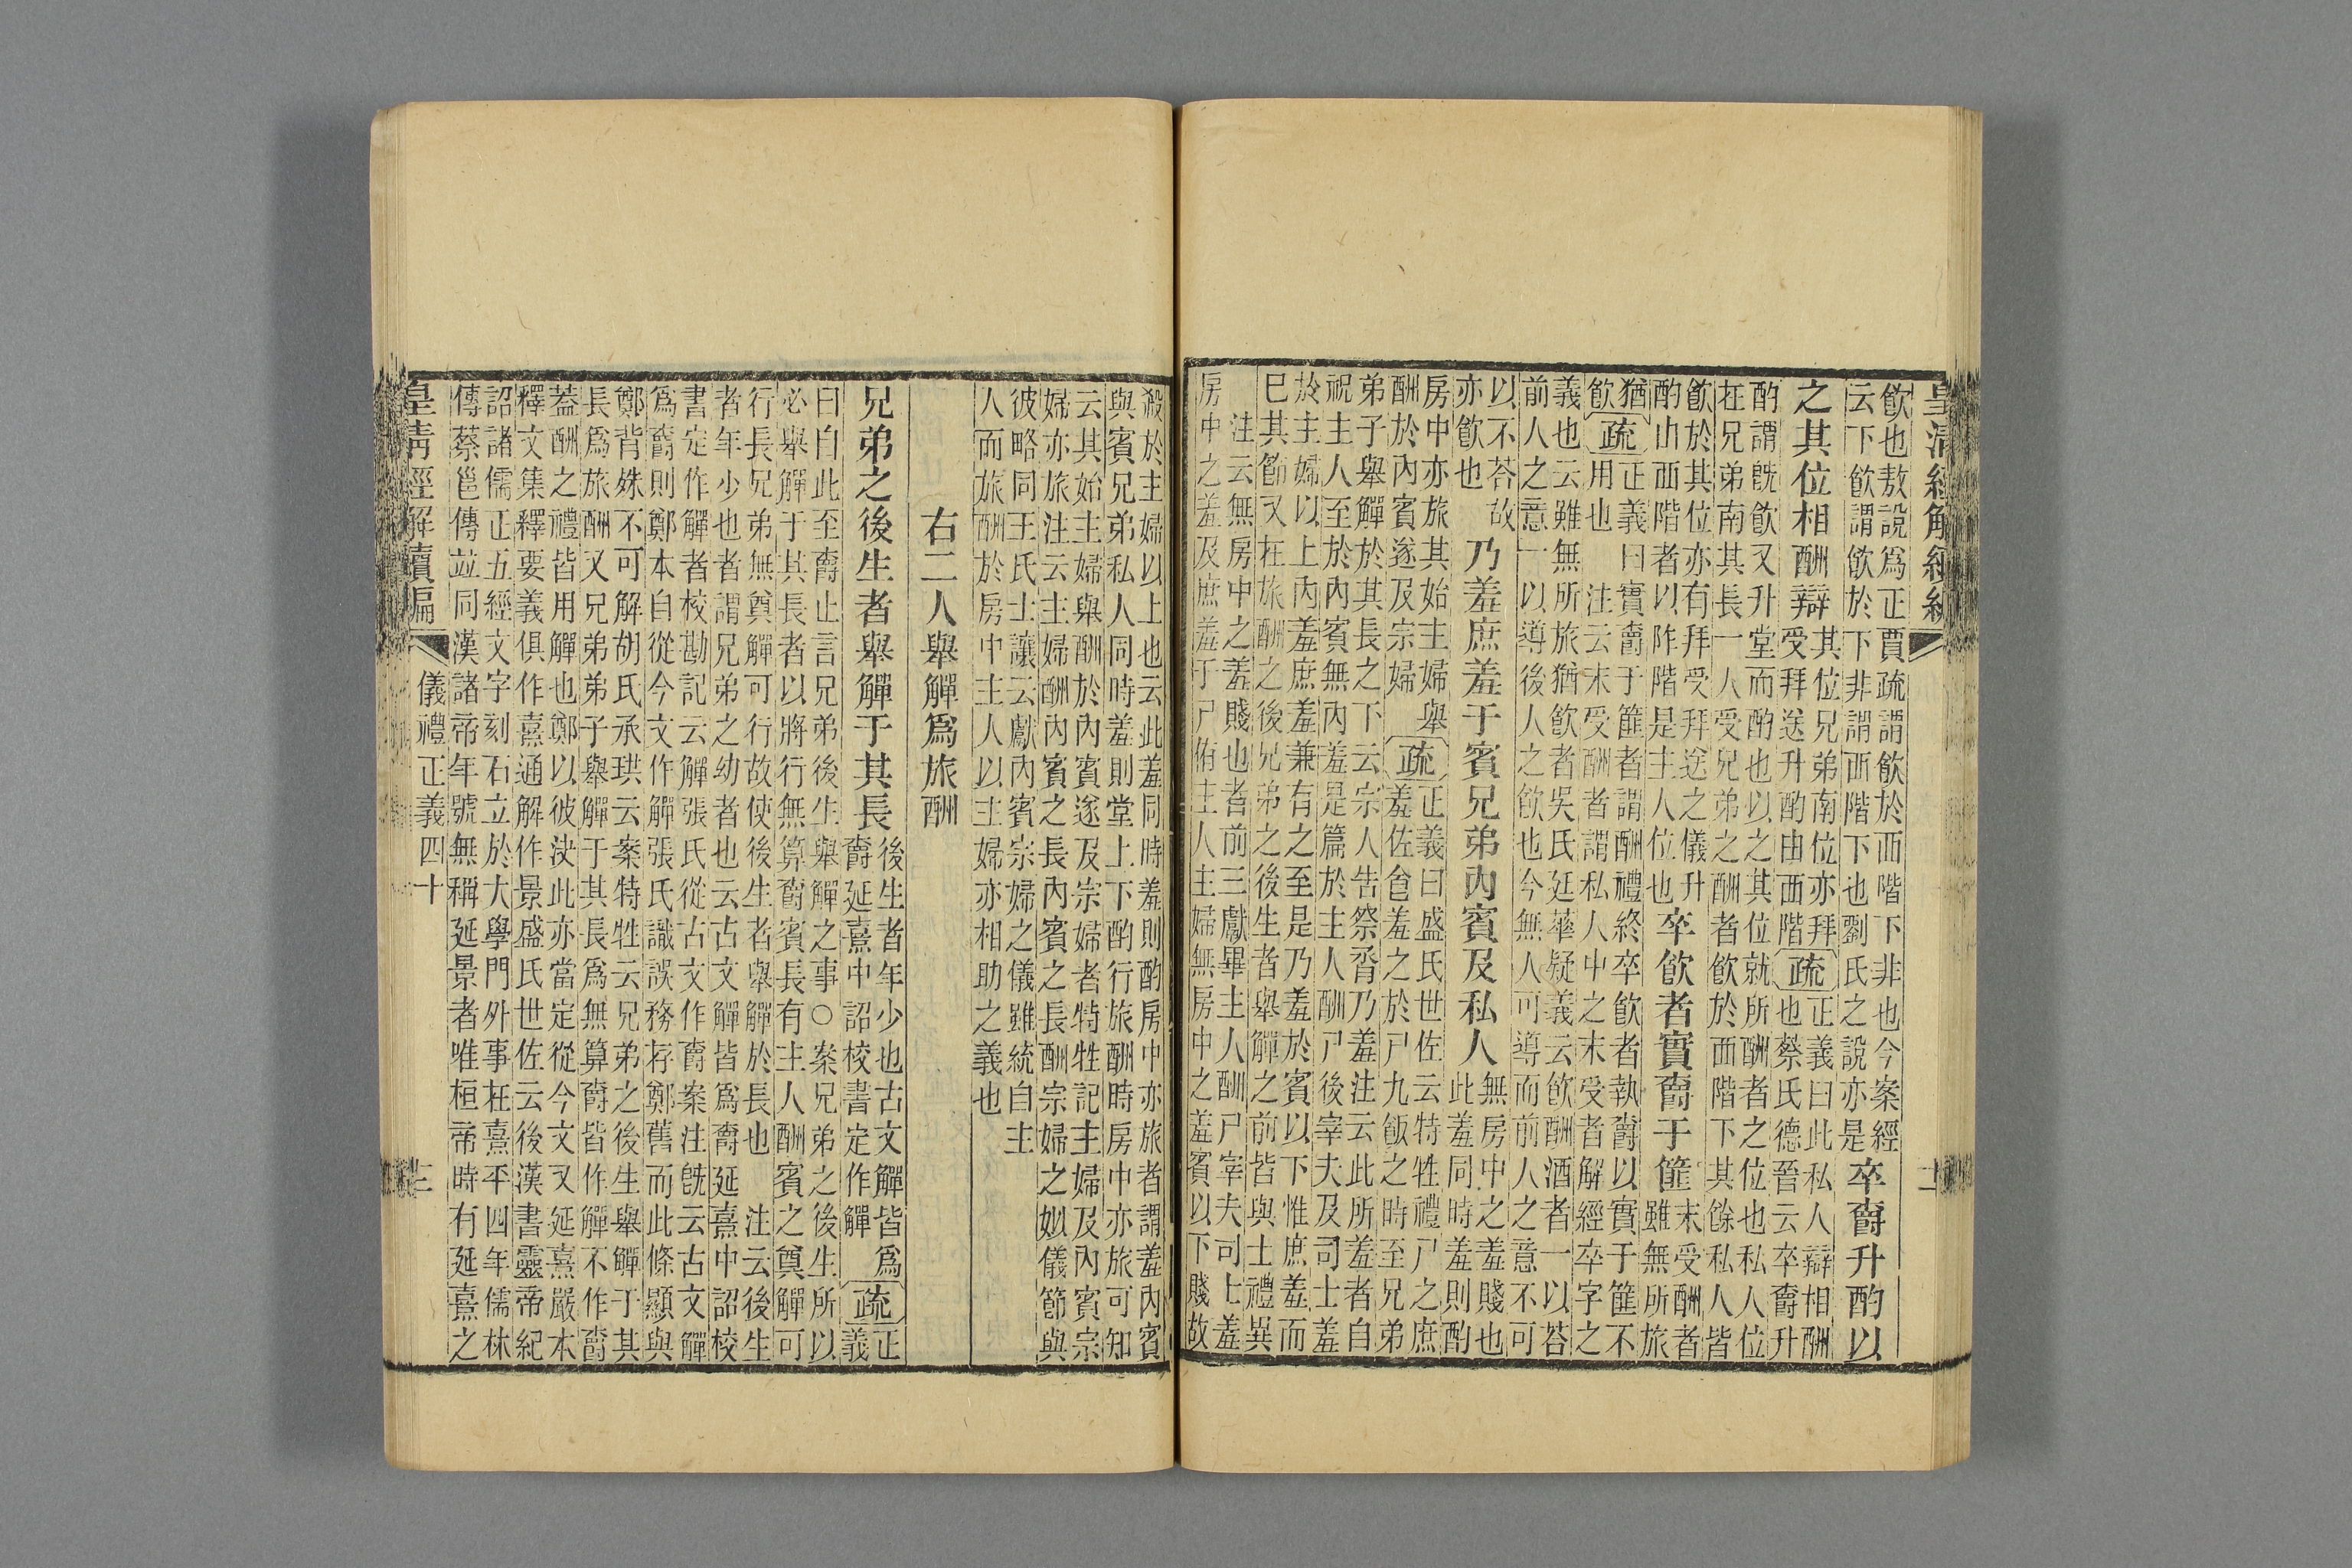 皇清經解續編
飮也敖說爲正賈疏謂飮於西階下非也今案經
云下飮謂飮於下非謂西階下也劉氏之說亦是
卒爵升酌以
之其位相酬辯
其位兄弟南位亦拜
受拜送升酌由西階
疏
正義曰此私人辯相酬
也蔡氏德晉云卒爵升
酌謂旣飮又升堂而酌也以之其位就所酬者之位也私人位
在兄弟南其長一人受兄弟之酬者飮於西階下其餘私人皆
飮於其位亦有拜受拜送之儀升
酌由西階者以阼階是主人位也
卒飮者實爵于篚
末受酬者
雖無所旅
猶
飮
疏
正義曰實爵于篚者謂酬禮終卒飮者執爵以實于篚不
用也 注云末受酬者謂私人中之末受者解經卒字之
義也云雖無所旅猶飮者吳氏廷華疑義云飮酬酒者一以荅
前人之意一以導後人之飮也今無人可導而前人之意不可
以不荅故
亦飮也
乃羞庶羞于賓兄弟內賓及私人
無房中之羞賤也
此羞同時羞則酌
房中亦旅其始主婦舉
酬於內賓遂及宗婦
疏
正義曰盛氏世佐云特牲禮尸之庶
羞佐食羞之於尸九飯之時至兄弟
弟子舉觶於其長之下云宗人告祭脀乃羞注云此所羞者自
祝主人至於內賓無內羞是篇於主人酬尸後宰夫及司士羞
於主婦以上內羞庶羞兼有之至是乃羞於賓以下惟庶羞而
已其節又在旅酬之後兄弟之後生者舉觶之前皆與士禮異
注云無房中之羞賤也者前三獻畢主人酬尸宰夫司士羞
房中之羞及庶羞于尸侑主人主婦無房中之羞賓以下賤故
殺於主婦以上也云此羞同時羞則酌房中亦旅者謂羞內賓
與賓兄弟私人同時羞則堂上下酌行旅酬時房中亦旅可知
云其始主婦舉酬於內賓遂及宗婦者特牲記主婦及內賓宗
婦亦旅注云主婦酬內賓之長內賓之長酬宗婦之姒儀節與
彼略同王氏士讓云獻內賓宗婦之儀雖統自主
人而旅酬於房中主人以主婦亦相助之義也
右二人舉觶爲旅酬
兄弟之後生者舉觶于其長
後生者年少也古文觶皆爲
爵延熹中詔校書定作觶
疏
正
義
曰自此至爵止言兄弟後生舉觶之事○案兄弟之後生所以
必舉觶于其長者以將行無算爵賓長有主人酬賓之奠觶可
行長兄弟無奠觶可行故使後生者舉觶於長也 注云後生
者年少也者謂兄弟之幼者也云古文觶皆爲爵延熹中詔校
書定作觶者校勘記云觶張氏從古文作爵案注旣云古文觶
爲爵則鄭本自從今文作觶張氏識誤務存鄭舊而此條顯與
鄭背殊不可解胡氏承珙云案特牲云兄弟之後生舉觶于其
長爲旅酬又兄弟弟子舉觶于其長爲無算爵皆作觶不作爵
蓋酬之禮皆用觶也鄭以彼決此亦當定從今文又延熹嚴本
釋文集釋要義俱作熹通解作景盛氏世佐云後漢書靈帝紀
詔諸儒正五經文字刻石立於大學門外事在熹平四年儒林
傳蔡邕傳竝同漢諸帝年號無稱延景者唯桓帝時有延熹之
皇淸經解續編
儀禮正義四十
三